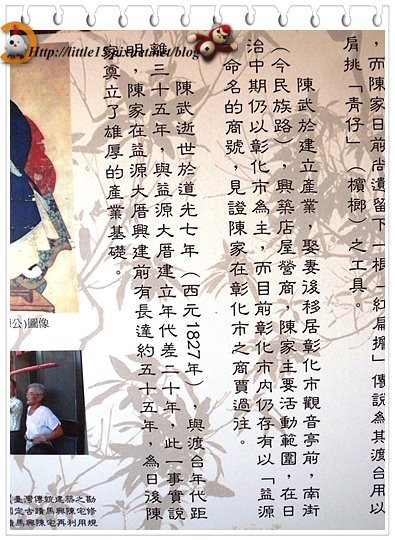 ，而陳家目前尚遺留下一根「紅扁擔」傳說為其渡台用以
肩挑「青仔」（檳榔）之工具。
陳武於建立產業，娶妻後移居彰化市觀音亭前，南街
（今民族路），興築店屋營商，陳家主要活動範圍，在日
治中期仍以彰化市為主，而目前彰化市內仍存有以「益源
命名的商號，見證陳家在彰化市之商賈過往。
陳武逝世於道光七年（西元1827年），與渡台年代距
離三十五年，與益源大厝建立年代差二十年，此一事實說
明，陳家在益源大厝興建前有長達約五十五年，為日後陳
家奠立了雄厚的產業基礎。
公)圖像
臺灣傳統建築之勘
定古蹟馬興陳宅修
馬興陳宅再利用規
Http://little15.pixnet.net/blog